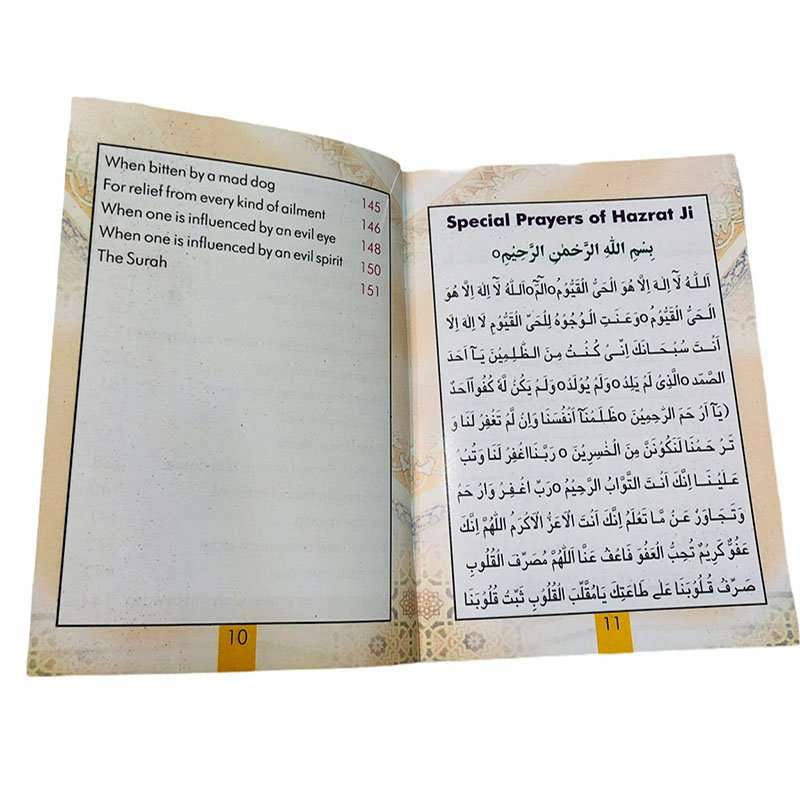 When bitten by a mad dog
For relief from every kind of ailment 145
When one is influenced by an evil eye 146
When one is influenced by an evil spirit 148
The Surah 150
151
10
Special Prayers of Hazrat Ji
بِسْمِ اللّٰهِ الرَّحْمٰنِ الرَّحِيْمِ o
اَللّٰهُ لَآ اِلٰهَ اِلَّا هُوَ الْحَىُّ الْقَيُّوْمُ o الٓمّٓ o اَللّٰهُ لَآ اِلٰهَ اِلَّا هُوَ
الْحَىُّ الْقَيُّوْمُ o وَعَنَتِ الْوُجُوْهُ لِلْحَىِّ الْقَيُّوْمِ لَا اِلٰهَ اِلَّا
اَنْتَ سُبْحَانَكَ اِنِّىْ كُنْتُ مِنَ الظّٰلِمِيْنَ يَآ اَحَدَ
الصَّمَد o الَّذِىْ لَمْ يَلِدْ o وَلَمْ يُوْلَدْ o وَلَمْ يَكُنْ لَّهٗ كُفُوًا اَحَدٌ
(يَآ اَرْحَمَ الرّٰحِمِيْنَ o ظَلَمْنَآ اَنْفُسَنَا وَاِنْ لَّمْ تَغْفِرْ لَنَا وَ
تَرْحَمْنَا لَنَكُوْنَنَّ مِنَ الْخٰسِرِيْنَ o رَبَّنَا اغْفِرْ لَنَا وَتُبْ
عَلَيْنَا اِنَّكَ اَنْتَ التَّوَّابُ الرَّحِيْمُ o رَبِّ اغْفِرْ وَارْحَمْ
وَتَجَاوَزْ عَنْ مَّا تَعْلَمُ اِنَّكَ اَنْتَ الْاَعَزُّ الْاَكْرَمُ اَللّٰهُمَّ اِنَّكَ
عَفُوٌّ كَرِيْمٌ تُحِبُّ الْعَفْوَ فَاعْفُ عَنَّا اَللّٰهُمَّ مُصَرِّفَ الْقُلُوْبِ
صَرِّفْ قُلُوْبَنَا عَلٰى طَاعَتِكَ يَامُقَلِّبَ الْقُلُوْبِ ثَبِّتْ قُلُوْبَنَا
11